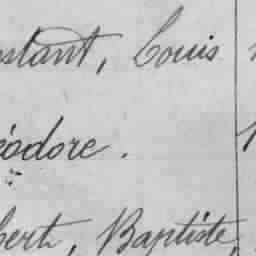 nstant, Louis
éodore.
bert, Baptiste,